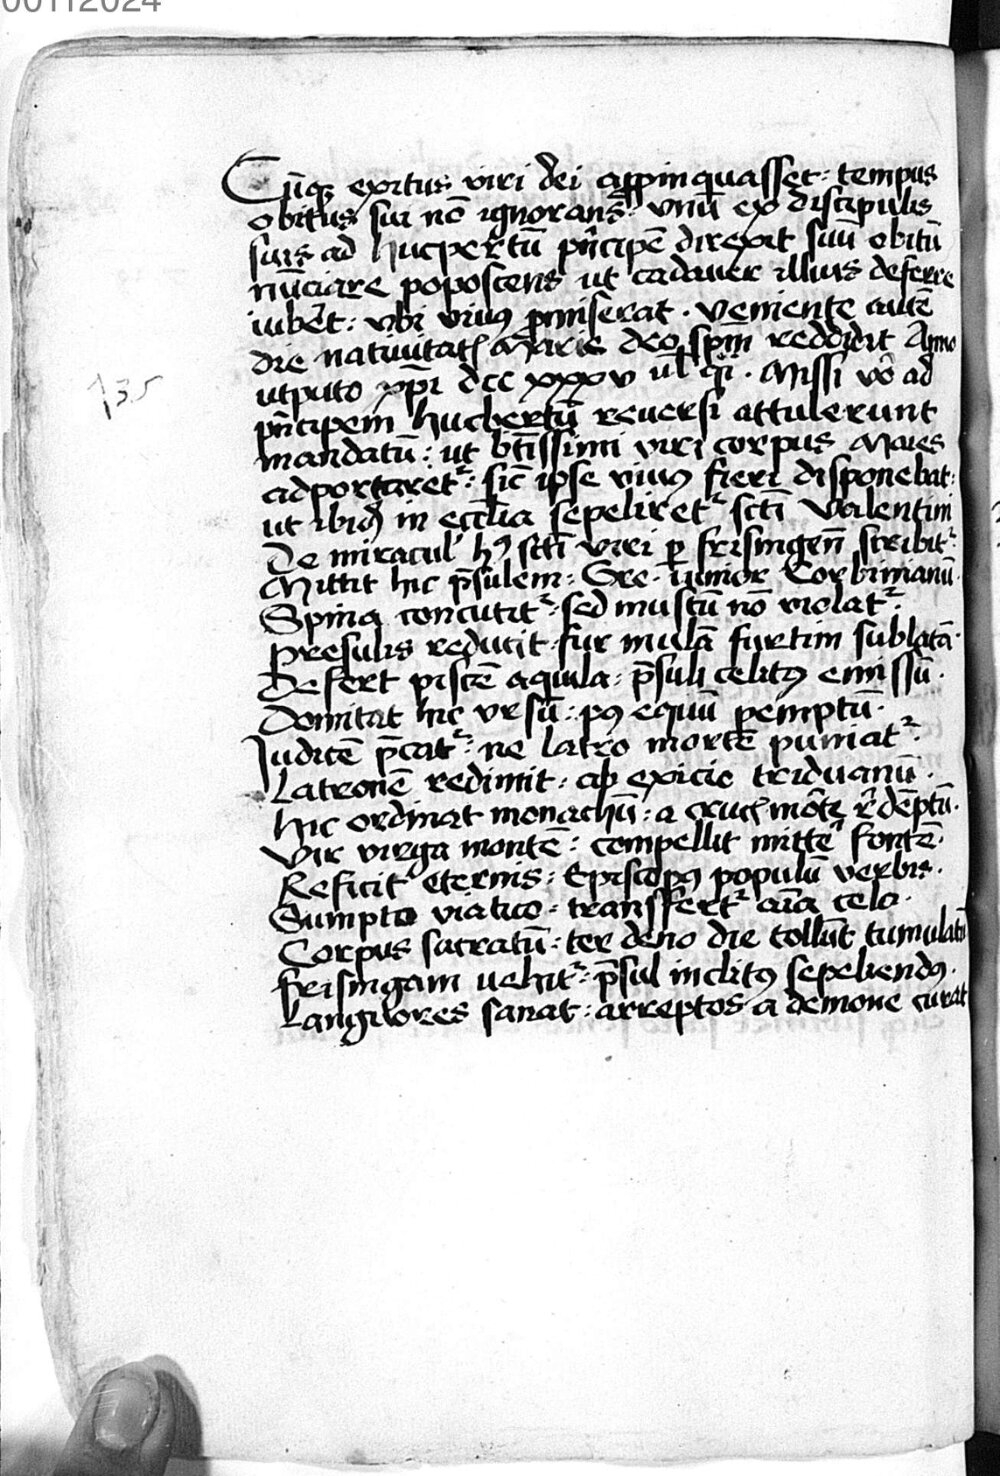 00112024
Cūqꝫ exitus viri dei appinquasset: tempus
obitus sui nō ignorans: vnū ex discipulis
suis ad hucpertū pͥncipē direxit suū obitū
nūciare poposcens ut cadauer illius deferre
iuberet: vbi viuꝰ ꝓmiserat. veniente autē
die natiuitatꝭ Marie deo spm̄ reddidit Anno
utputo xpi dcc xxxv ul qͥ. Missi vo ad
pͥncipem hucbertū reuersi attulerunt
mandatū: ut btissimi viri corpus Maies
adportaretᷣ: sic ipse viuꝰ fieri disponebat:
ut ibiꝫ in eccl̄ia sepeliretᷣ scti Valentini
De miracul' hꝰ scti viri ꝑ frisingen̄ scribitᷣ:
Mittit hic p̄sulem: Gre. iunior Corbinianū.
Spina concutitᷣ: sed muscū nō violatᷣ.
Presulis reducit fur mulā furtim sublatā.
Defert piscē aquila: p̄suli celitꝰ emissū.
Domitat hic vrsū: pꝰ equū ꝑemptū.
Iudicē p̄catᷣ: ne latro mortē puniatᷣ.
Latronē redimit: ab exicio triduanū.
hic ordinat monachū: a crucꝭ môtꝫ rͤdēptū.
Vir virga montē: compellit mittē fontē.
Reficit eternis: Episcopꝰ populū verbis.
Sumpto viatico: transfertᷣ aīa celo.
Corpus sacratū: ter deno die tollūt tumulatū
frisingam uehitᷣ: p̄sul inclitꝰ sepeliendꝰ.
Languores sanat: arreptos a demone curat
735